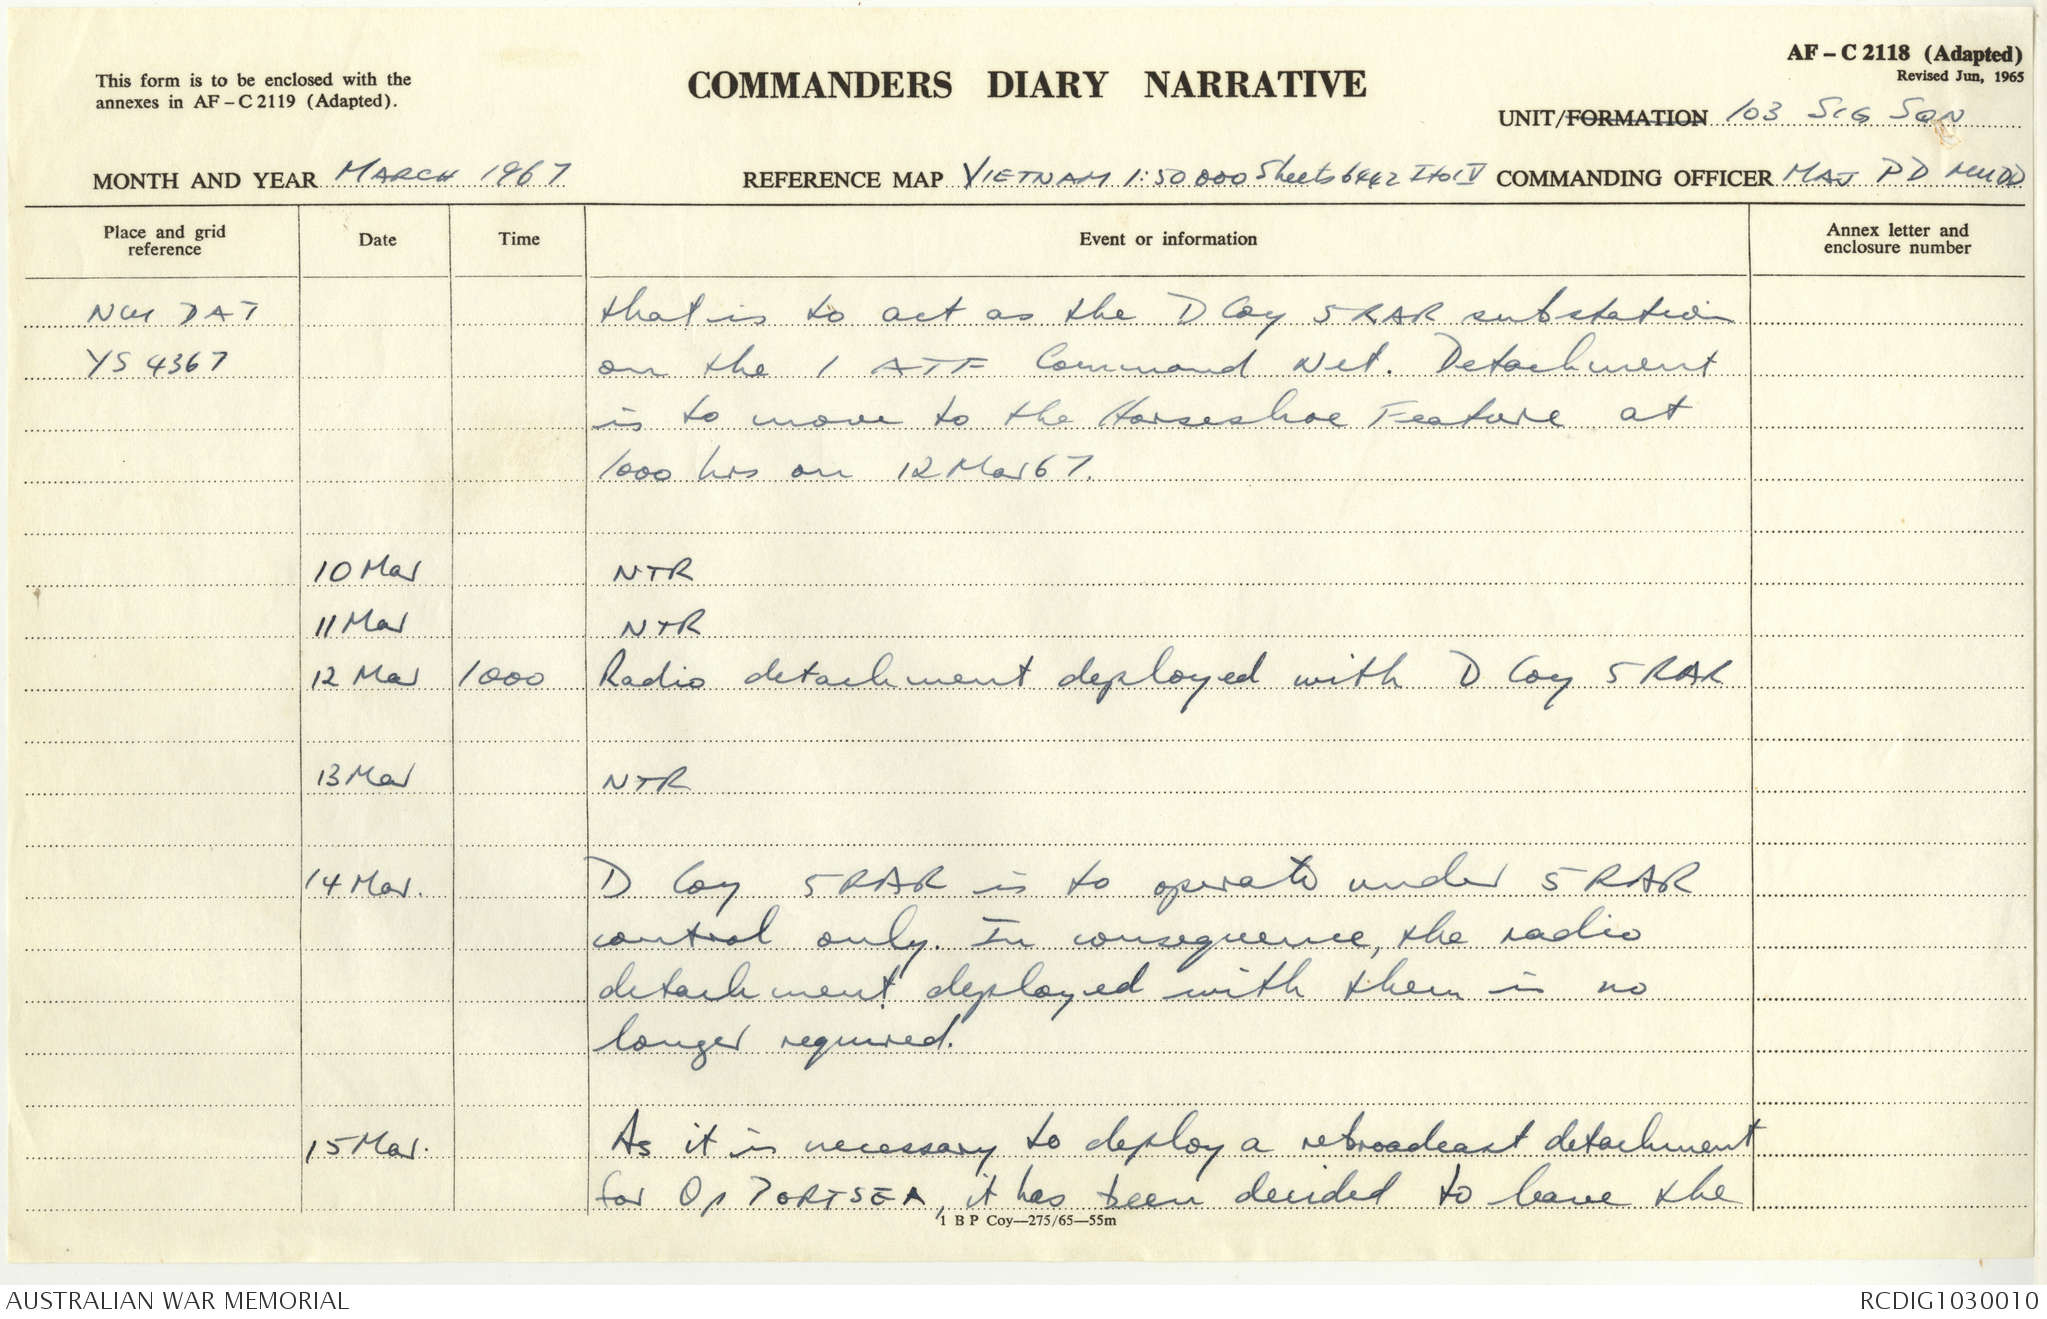 This form is to be enclosed with the
annexes in AF – C 2119 (Adapted).
COMMANDERS DIARY NARRATIVE
AF – C 2118 (Adapted)
Revised Jun, 1965
UNIT/FORMATION 103 SIG SQN
MONTH AND YEAR MARCH 1967
REFERENCE MAP VIETNAM 1:50 000 Sheets 6442 I to IV
COMMANDING OFFICER MAJ PD MUDD
Place and grid
reference
Date
Time
Event or information
Annex letter and
enclosure number
NUI DAT that is to act as the D Coy 5 RAR substation
YS 4367 on the 1 ATF Command Net. Detachment
is to move to the Horseshoe Feature at
1000 hrs on 12 Mar 67.
10 Mar NTR
11 Mar NTR
12 Mar 1000 Radio detachment deployed with D Coy 5 RAR
13 Mar NTR
14 Mar. D Coy 5 RAR is to operate under 5 RAR
control only. In consequence, the radio
detachment deployed with them is no
longer required.
15 Mar. As it is necessary to deploy a rebroadcast detachment
for Op PORTSEA, it has been decided to leave the
1 B P Coy—275/65—55m
AUSTRALIAN WAR MEMORIAL
RCDIG1030010